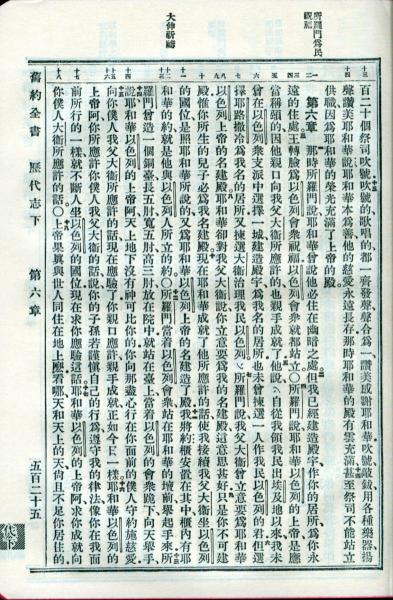 所羅門為民
祝福
大仲祈禱
百二十個祭司吹號吹號的歌唱的都一齊發聲聲合為一讚美感謝耶和華吹號敲鈸用各種樂器揚
聲讚美耶和華說耶和華本為善他的慈愛永遠長存那時耶和華的殿有雲充滿甚至祭司不能站立
供職因為耶和華的榮光充滿了上帝的殿
第六章 那時所羅門說耶和華曾說他必住在幽暗之處但我已經建造殿宇作你的居所為你永
遠的住處王轉臉為以色列會衆祝福以色列會衆就都站立○所羅門說耶和華以色列的上帝是應
當稱頌的因他親口向我父大衛所應許的也親手成就了他說自從我領我民出埃及地以來我未
曾在以色列衆支派中選擇一城建造殿宇為我名的居所也未曾揀選一人作我民以色列的君但選
擇耶路撒冷為我名的居所又揀選大衛治理我民以色列所羅門說我父大衛曾立意要為耶和華
以色列上帝的名建殿耶和華卻對我父大衛說你立意要為我的名建殿這意思甚好只是你不可建
殿惟你所生的兒子必為我名建殿現在耶和華成就了他所應許的話使我接續我父大衛坐以色列
的國位是照耶和華所說的又為耶和華以色列上帝的名建造了殿我將約櫃安置在其中櫃內有耶
和華的約就是他與以色列人所立的約○所羅門當着以色列會衆站在耶和華的壇前舉起手來所
羅門曾造一個銅臺長五肘寬五肘高三肘放在院中就站在臺上當着以色列的會衆跪下向天舉手
說耶和華以色列的上帝阿天上地下沒有神可比你的你向那盡心行在你面前的僕人守約施慈愛
向你僕人我父大衛所應許的話現在應驗了你親口應許親手成就正如今日一樣耶和華以色列的
上帝阿你所應許你僕人我父大衛的話說你的子孫若謹慎自己的行為遵守我的律法像你在我面
前所行的一樣就不斷人坐以色列的國位現在求你應驗這話耶和華以色列的上帝阿求你成就向
你僕人大衛所應許的話○上帝果真與世人同住在地上麼看哪天和天上的天尚且不足你居住的
舊約全書 歷代志下 第六章 五百二十五
代下